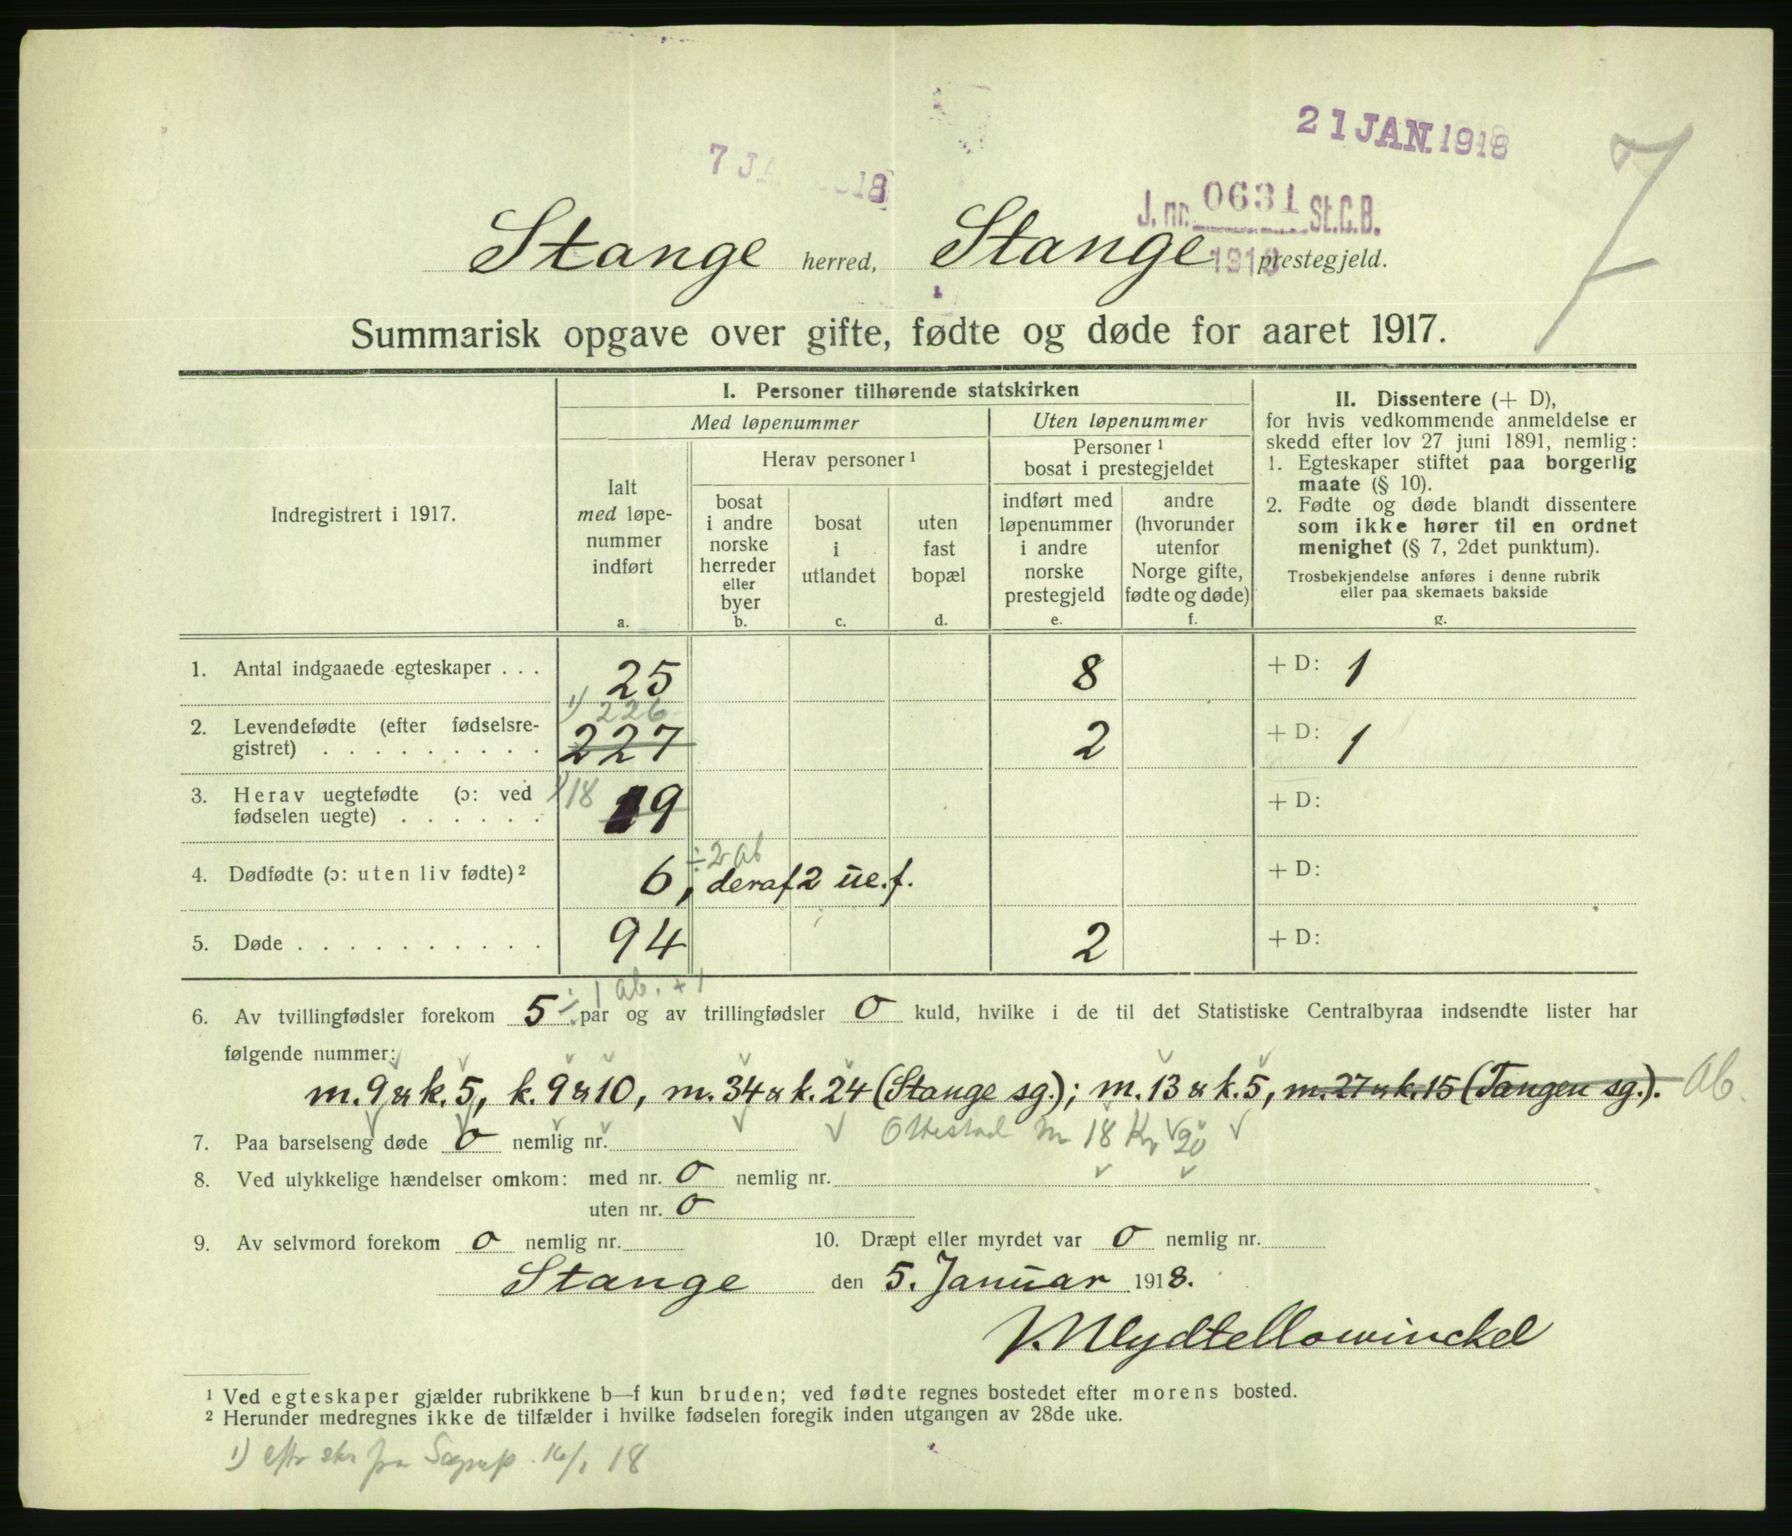 21 JAN. 1918
7
J. nr. 0631 St.C.B.
1918
Stange herred, Stange prestegjeld.
Summarisk opgave over gifte, fødte og døde for aaret 1917.
Indregistrert i 1917.
I. Personer tilhørende statskirken
Med løpenummer
Uten løpenummer
Herav personer ¹
Personer ¹
bosat i prestegjeldet
Ialt
med løpe-
nummer
indført
a.
bosat
i andre
norske
herreder
eller
byer
b.
bosat
i
utlandet
c.
uten
fast
bopæl
d.
indført med
løpenummer
i andre
norske
prestegjeld
e.
andre
(hvorunder
utenfor
Norge gifte,
fødte og døde)
f.
II. Dissentere (+ D),
for hvis vedkommende anmeldelse er
skedd efter lov 27 juni 1891, nemlig:
1. Egteskaper stiftet paa borgerlig
maate (§ 10).
2. Fødte og døde blandt dissentere
som ikke hører til en ordnet
menighet (§ 7, 2det punktum).
Trosbekjendelse anføres i denne rubrik
eller paa skemaets bakside
g.
1. Antal indgaaede egteskaper . . . 25 8 + D: 1
1) 226
2. Levendefødte (efter fødselsre-
gistret) . . . . . . . . . 227 2 + D: 1
3. Herav uegtefødte (ɔ: ved
fødselen uegte) . . . . . . 1) 18 19 + D:
÷ 2 ab
4. Dødfødte (ɔ: uten liv fødte) ² 6, deraf 2 ue. f. + D:
5. Døde . . . . . . . . . . 94 2 + D:
÷ 1 ab. + 1
6. Av tvillingfødsler forekom 5 par og av trillingfødsler 0 kuld, hvilke i de til det Statistiske Centralbyraa indsendte lister har
følgende nummer:
m. 9 & k. 5, k. 9 & 10, m. 34 & k. 24 (Stange sg.); m. 13 & k. 5, m. 27 & k. 15 (Tangen sg.). ab.
Ottestad m 18 Kv 20
7. Paa barselseng døde 0 nemlig nr.
8. Ved ulykkelige hændelser omkom: med nr. 0 nemlig nr.
uten nr. 0
9. Av selvmord forekom 0 nemlig nr. 10. Dræpt eller myrdet var 0 nemlig nr.
Stange den 5. Januar 1918.
¹ Ved egteskaper gjælder rubrikkene b—f kun bruden; ved fødte regnes bostedet efter morens bosted.
² Herunder medregnes ikke de tilfælder i hvilke fødselen foregik inden utgangen av 28de uke.
1) eftr skr fra 16/1 18